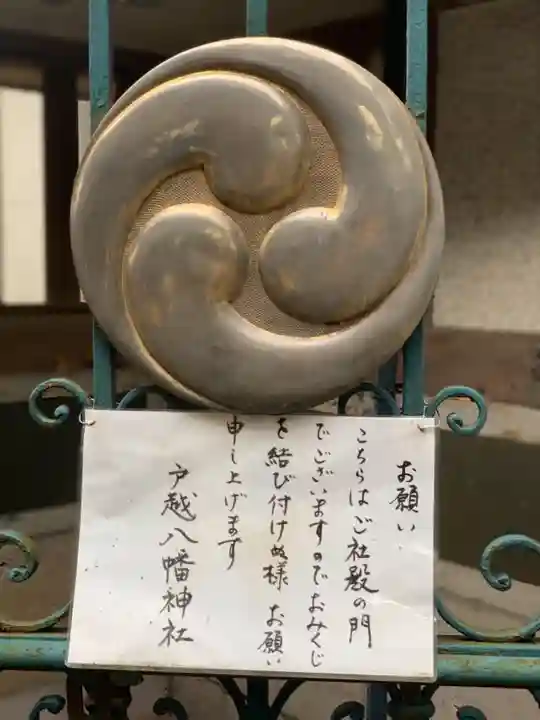 お願い
こちらはご社殿の門
でございますのでおみくじ
を結び付けぬ様 お願い
申し上げます
戸越八幡神社